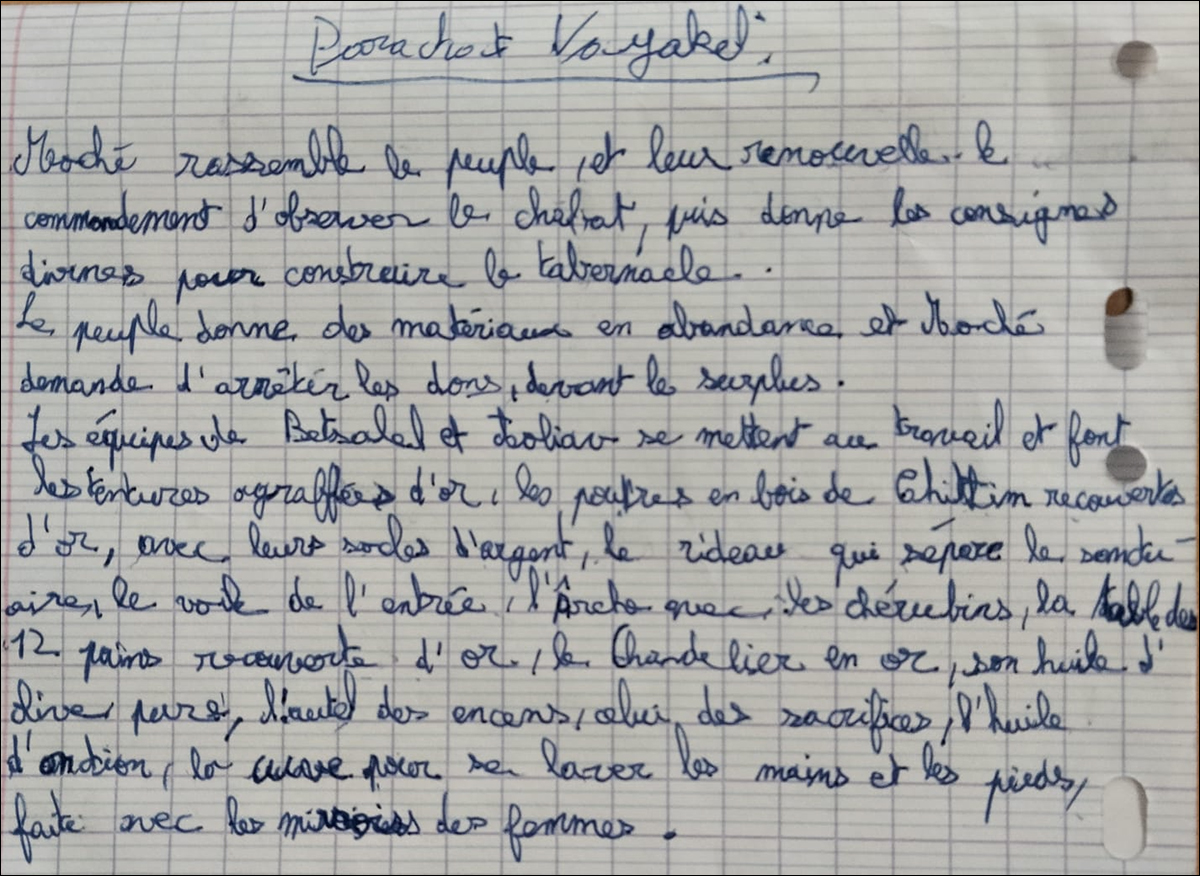 Parachat Vayakel :
Moché rassemble le peuple, et leur renouvelle le
commandement d'observer le chabat, puis donne les consignes
divines pour construire le tabernacle.
Le peuple donne des matériaux en abondance et Moché
demande d'arrêter les dons, devant le surplus.
Les équipes de Betsalel et Aoliav se mettent au travail et font
les tentures agraffées d'or, les poutres en bois de Chittim recouvertes
d'or, avec leurs socles d'argent, le rideau qui sépare le sanctu-
aire, le voile de l'entrée, l'Arche avec les chérubins, la table des
12 pains recouverte d'or, le Chandelier en or, son huile d'
olive pure, l'autel des encens, celui des sacrifices, l'huile
d'onction, la cuve pour se laver les mains et les pieds,
faite avec les miroirs des femmes.